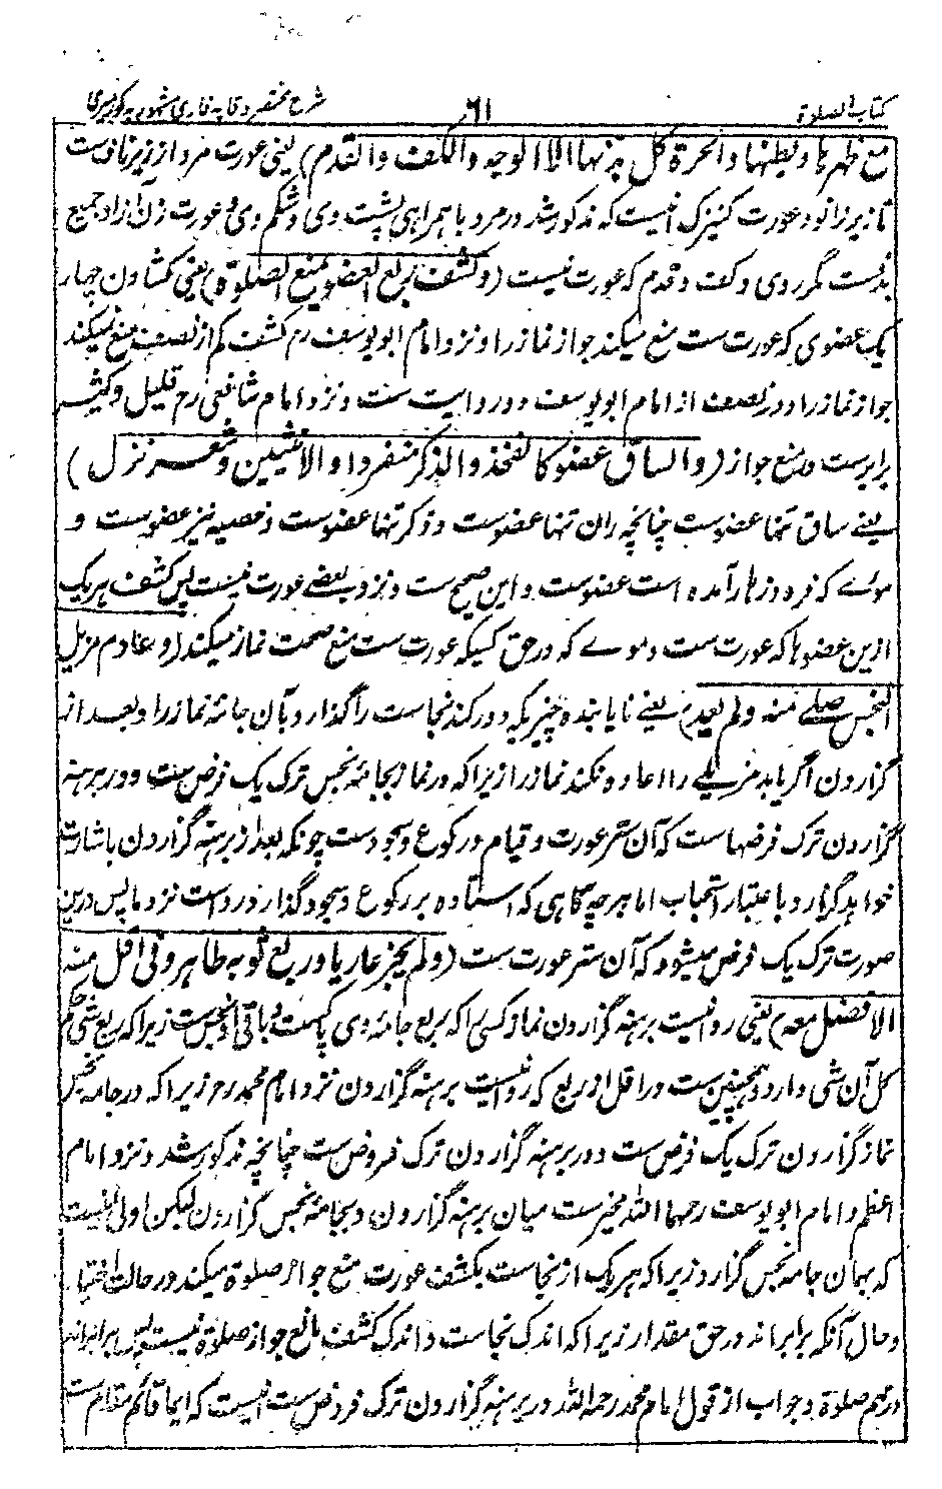 کتاب الصلوة ۶۱ شرح مختصر وقایه فارسی مشهور به کورمیری
مع ظهرها وبطنها والحرة کل بدنها الا الوجه والکف والقدم) یعنی عورت مرد از زیر ناف ست
تا زیر زانو وعورت کنیزک اینست که مذکور شد در مرد با همراهی پشت وی وشکم وی وعورت زن آزاد جمیع
بدنست مگر روی وکف وقدم که عورت نیست (وکشف ربع العضو یمنع الصلوة) یعنی کشادن چهار
یک عضوی که عورت ست منع میکند جواز نماز را ونزد امام ابو یوسف رح کشف کم از نصف منع نمیکند
جواز نماز را ودر نصف از امام ابو یوسف دو روایت ست ونزد امام شافعی رح قلیل وکثیر
برابرست در منع جواز (والساق عضو کالفخذ والذکر منفردا والانثیین وشعر نزل)
یعنے ساق تنها عضوست چنانچه ران تنها عضوست وذکر تنها عضوست وخصیه نیز عضوست و
موئے که فرود زها رآمده است عضوست واین صحیح ست ونزد بعضے عورت نیست پس کشف هر یک
ازین عضوها که عورت ست وموے که در حق کسیکه عورت ست منع صحت نماز میکند (وعادم مزیل
النجس صلے معه ولم یعد) یعنے نایابنده چیزیکه دور کند نجاست را گذارد بآن جامه نماز را وبعد از
گزاردن اگر یابد مزیلے را اعاده نکند نماز را زیرا که در نماز بجامه نجس ترک یک فرض ست ودر برهنه
گزاردن ترک فرضهاست که آن ستر عورت وقیام ورکوع وسجود ست چونکه بعد از برهنه گزاردن باشارت
خواهد گزارد باعتبار استحباب اما هرچه گاهی که استاده بر رکوع وسجود گذارد رواست نزد ما پس درین
صورت ترک یک فرض میشود که آن ستر عورت ست (ولم یجز عاریا وربع ثوبه طاهر وفی اقل منه
الافضل معه) یعنی روا نیست برهنه گزاردن نماز کسی را که ربع جامه وی پاکست وباقی او نجس ست زیرا که ربع شی حکم
کل آن شی دارد وهمچنین ست در اقل از ربع که روا نیست برهنه گزاردن نزد امام محمد رح زیرا که در جامه نجس
نماز گزاردن ترک یک فرض ست ودر برهنه گزاردن ترک فروض ست چنانچه مذکور شد ونزد امام
اعظم وامام ابو یوسف رحمهما الله مخیرست میان برهنه گزاردن وبجامه نجس گزاردن لیکن اولی اینست
که بهمان جامه نجس گزارد زیرا که هر یک از نجاست وکشف عورت منع جواز صلوة میکند در حالت اختیار
وحال آنکه برابراند در حق مقدار زیرا که اندک نجاست واندک کشف مانع جواز صلوة نیست پس برابراند
در حکم صلوة وجواب از قول امام محمد رحمه الله در برهنه گزاردن ترک فروض ست اینست که ایما قائم مقام ست